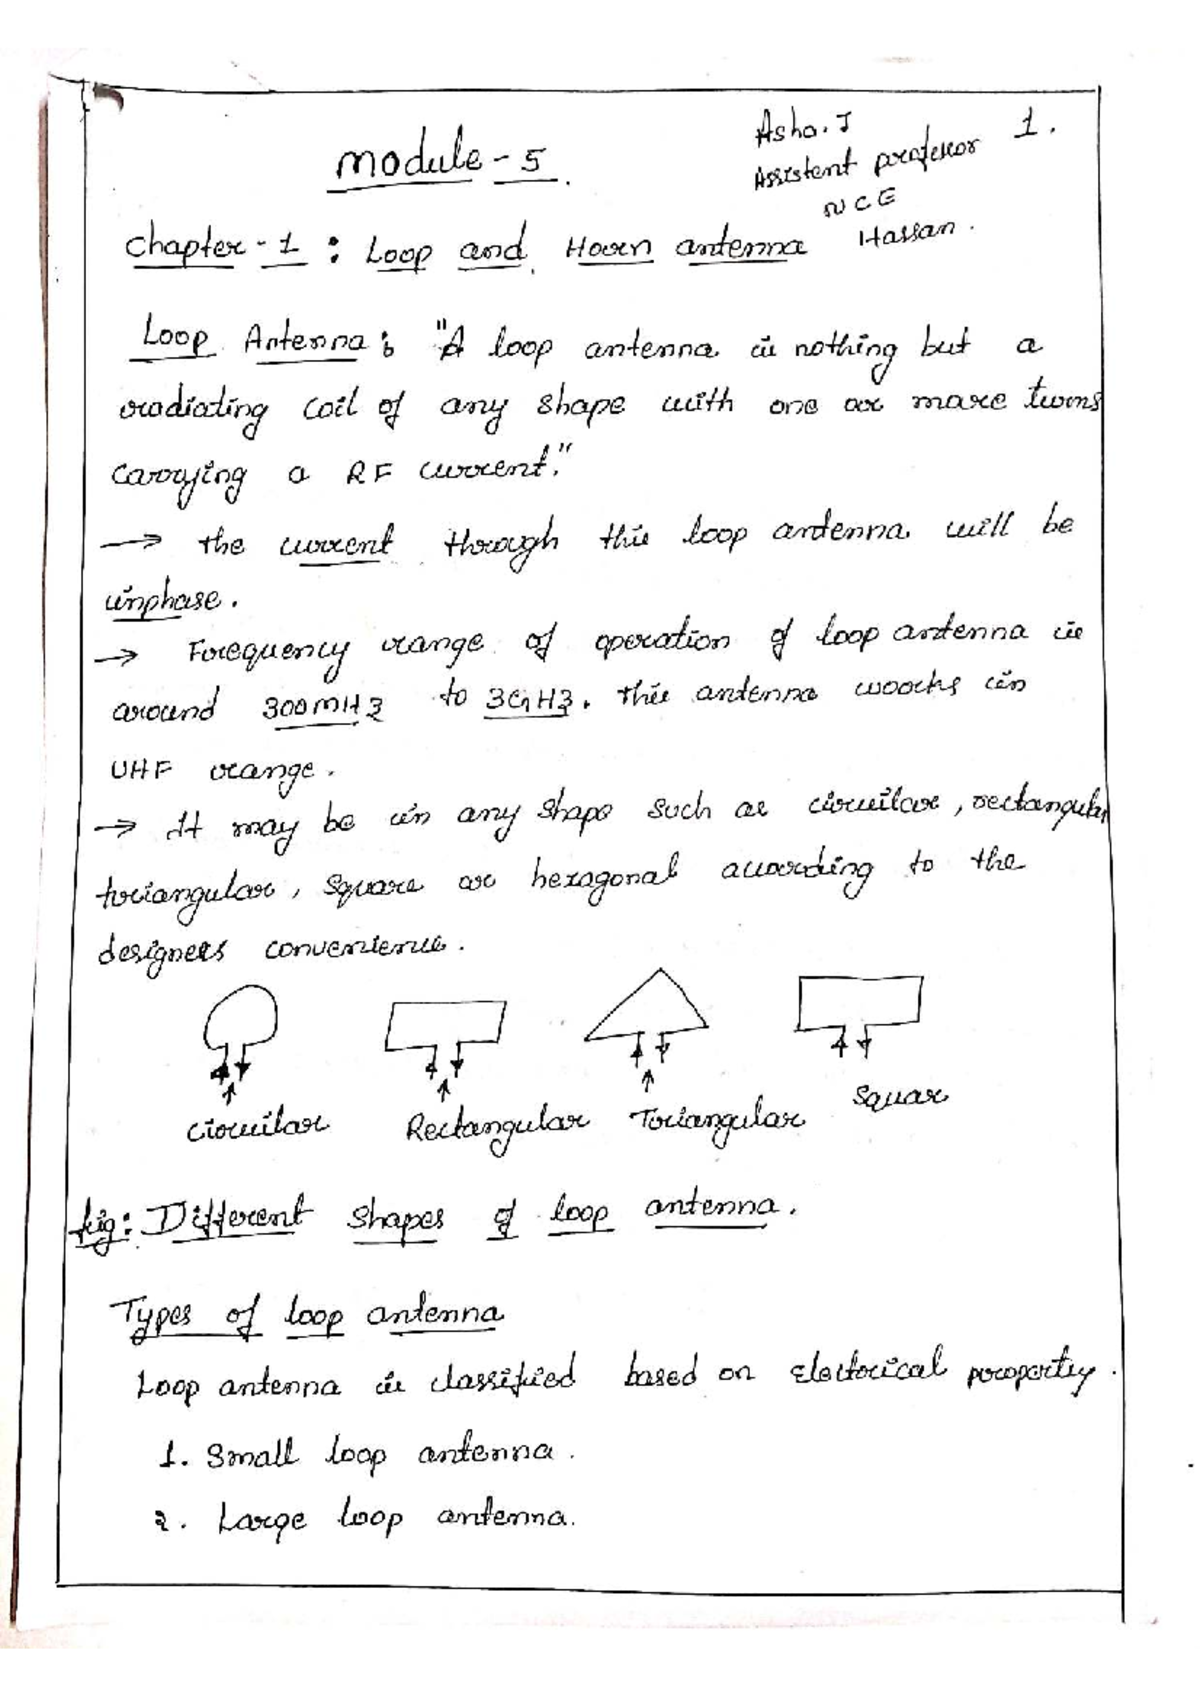 Asha. J 1.
Module - 5
Assistent professor
NCE
Hassan.
Chapter - 1 : Loop and Horn antenna
Loop Antenna : "A loop antenna is nothing but a
radiating coil of any shape with one or more turns
carrying a RF current."
→ the current through this loop antenna will be
inphase.
→ Frequency range of operation of loop antenna is
around 300MHz to 3GHz. this antenna woorks in
UHF range.
→ It may be in any shape such as circular, rectangular
triangular, square or hexagonal according to the
designers convenience.
Circular Rectangular Triangular Squar
fig: Different shapes of loop antenna.
Types of loop antenna
Loop antenna is classified based on Electrical property.
1. Small loop antenna.
2. Large loop antenna.